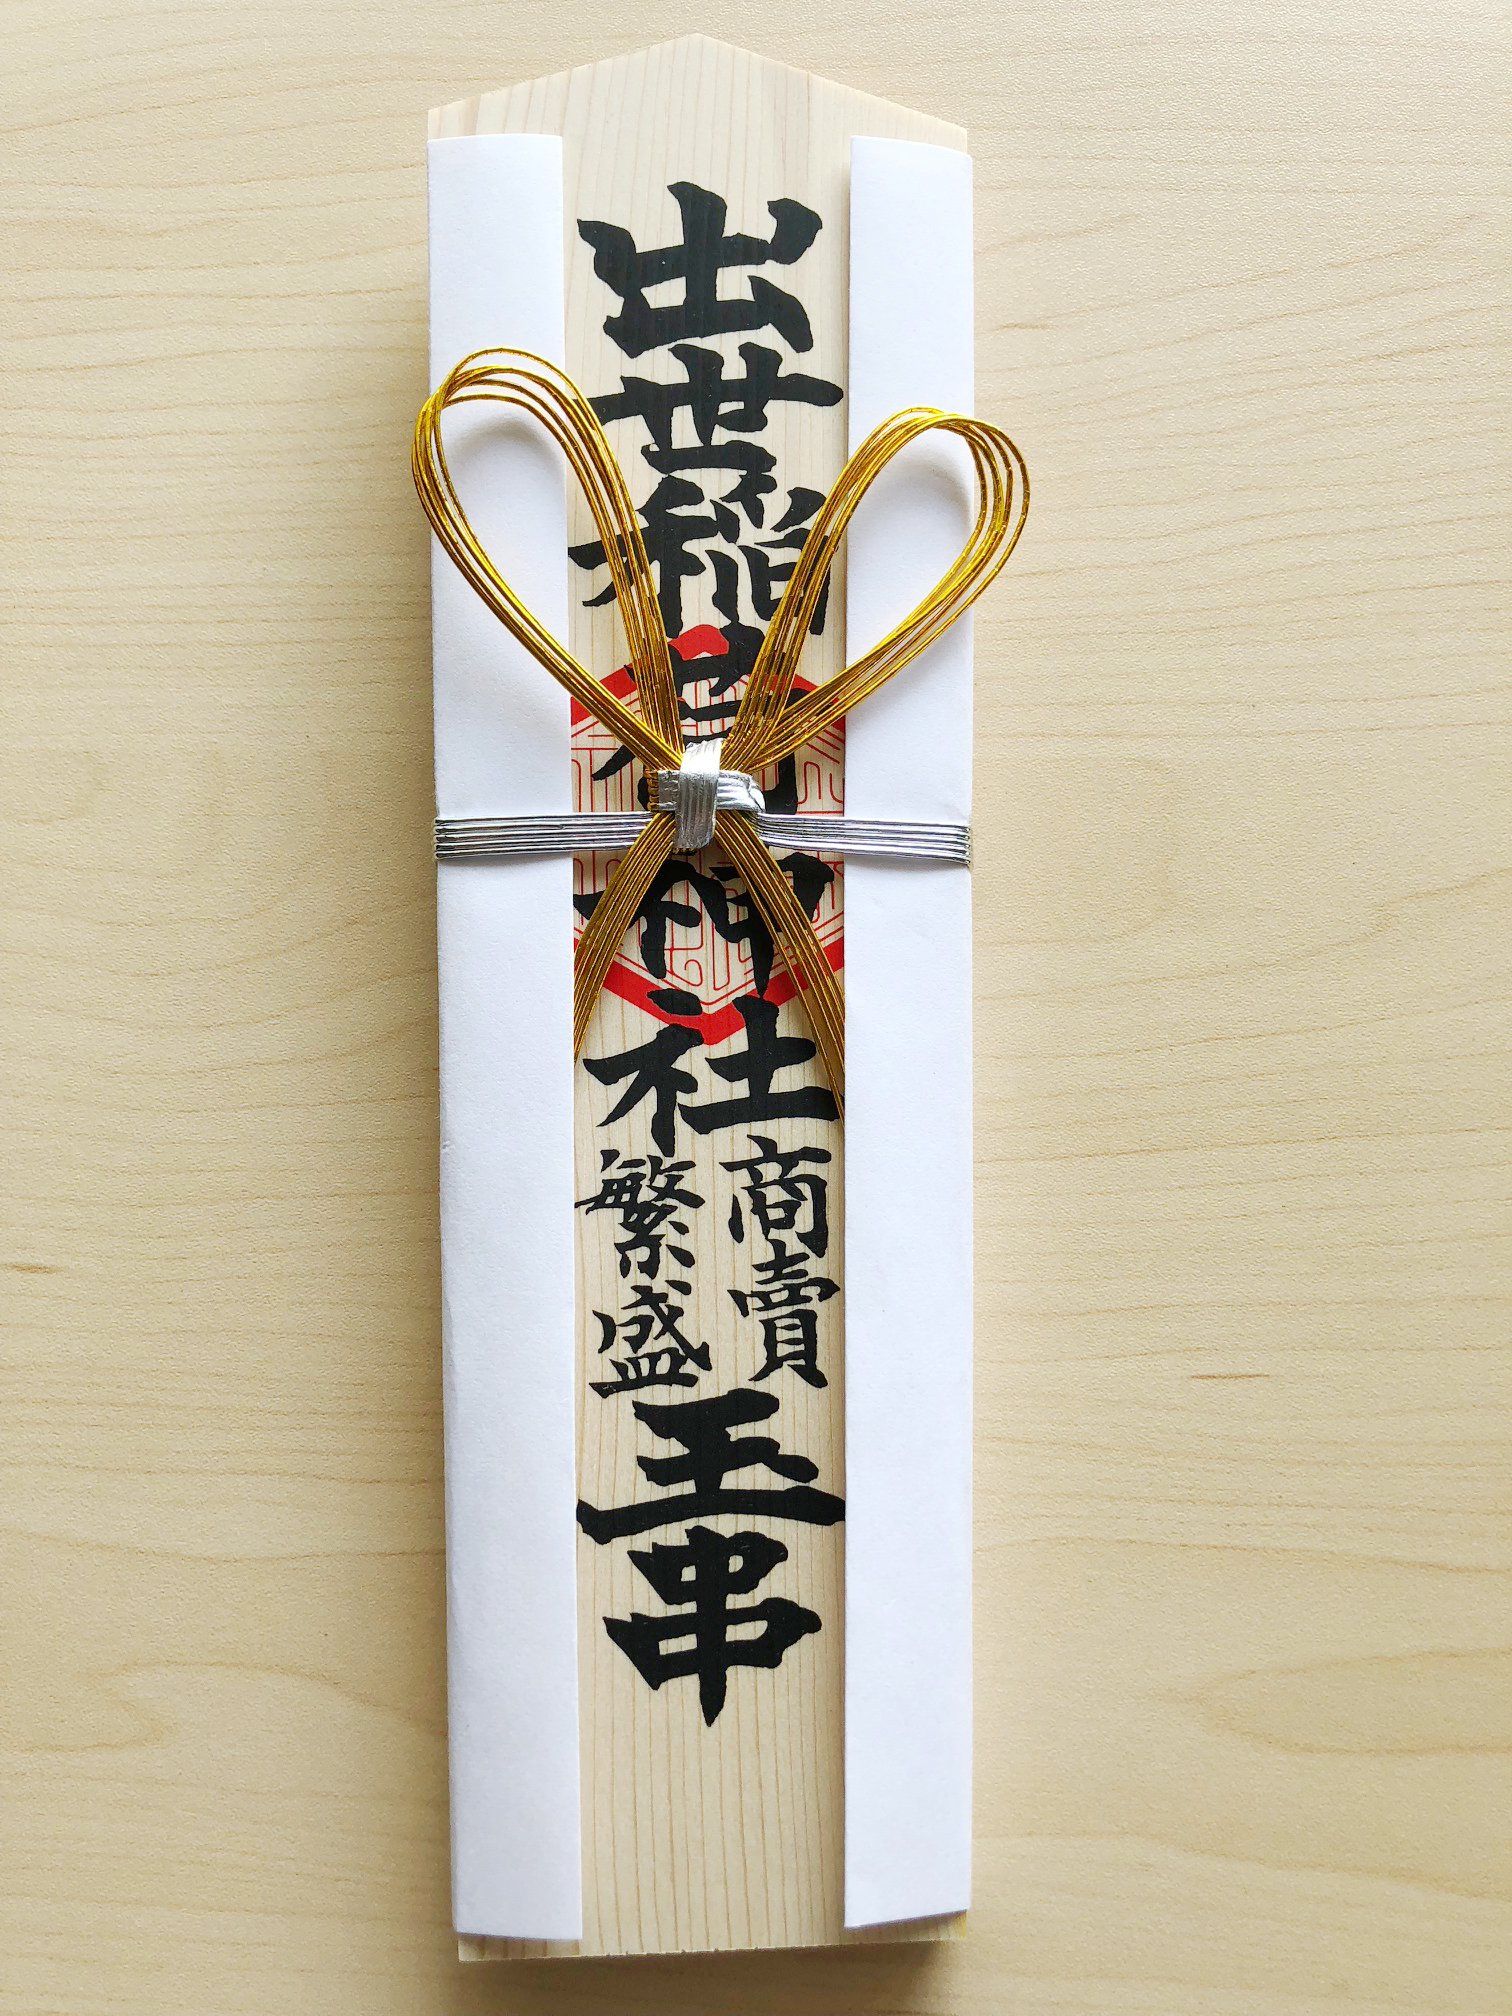 出世稲荷神社
商賣
繁盛
玉串